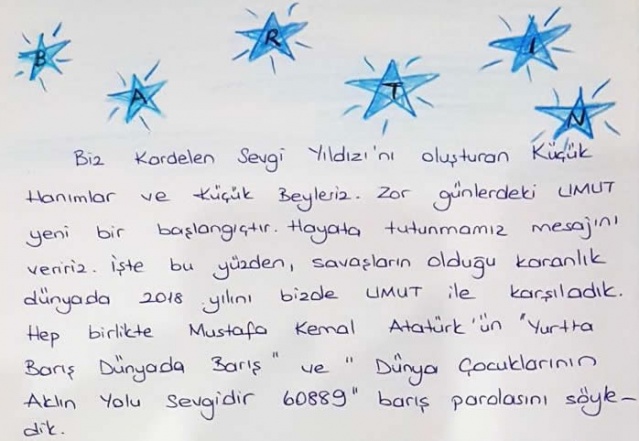 B A R T I N
Biz Kardelen Sevgi Yıldızı'nı oluşturan Küçük
Hanımlar ve Küçük Beyleriz. Zor günlerdeki UMUT
yeni bir başlangıçtır. Hayata tutunmamız mesajını
veririz. İşte bu yüzden, savaşların olduğu karanlık
dünyada 2018 yılını bizde UMUT ile karşıladık.
Hep birlikte Mustafa Kemal Atatürk'ün "Yurtta
Barış Dünyada Barış" ve "Dünya Çocuklarının
Aklın Yolu Sevgidir 60889" barış parolasını söyle-
dik.